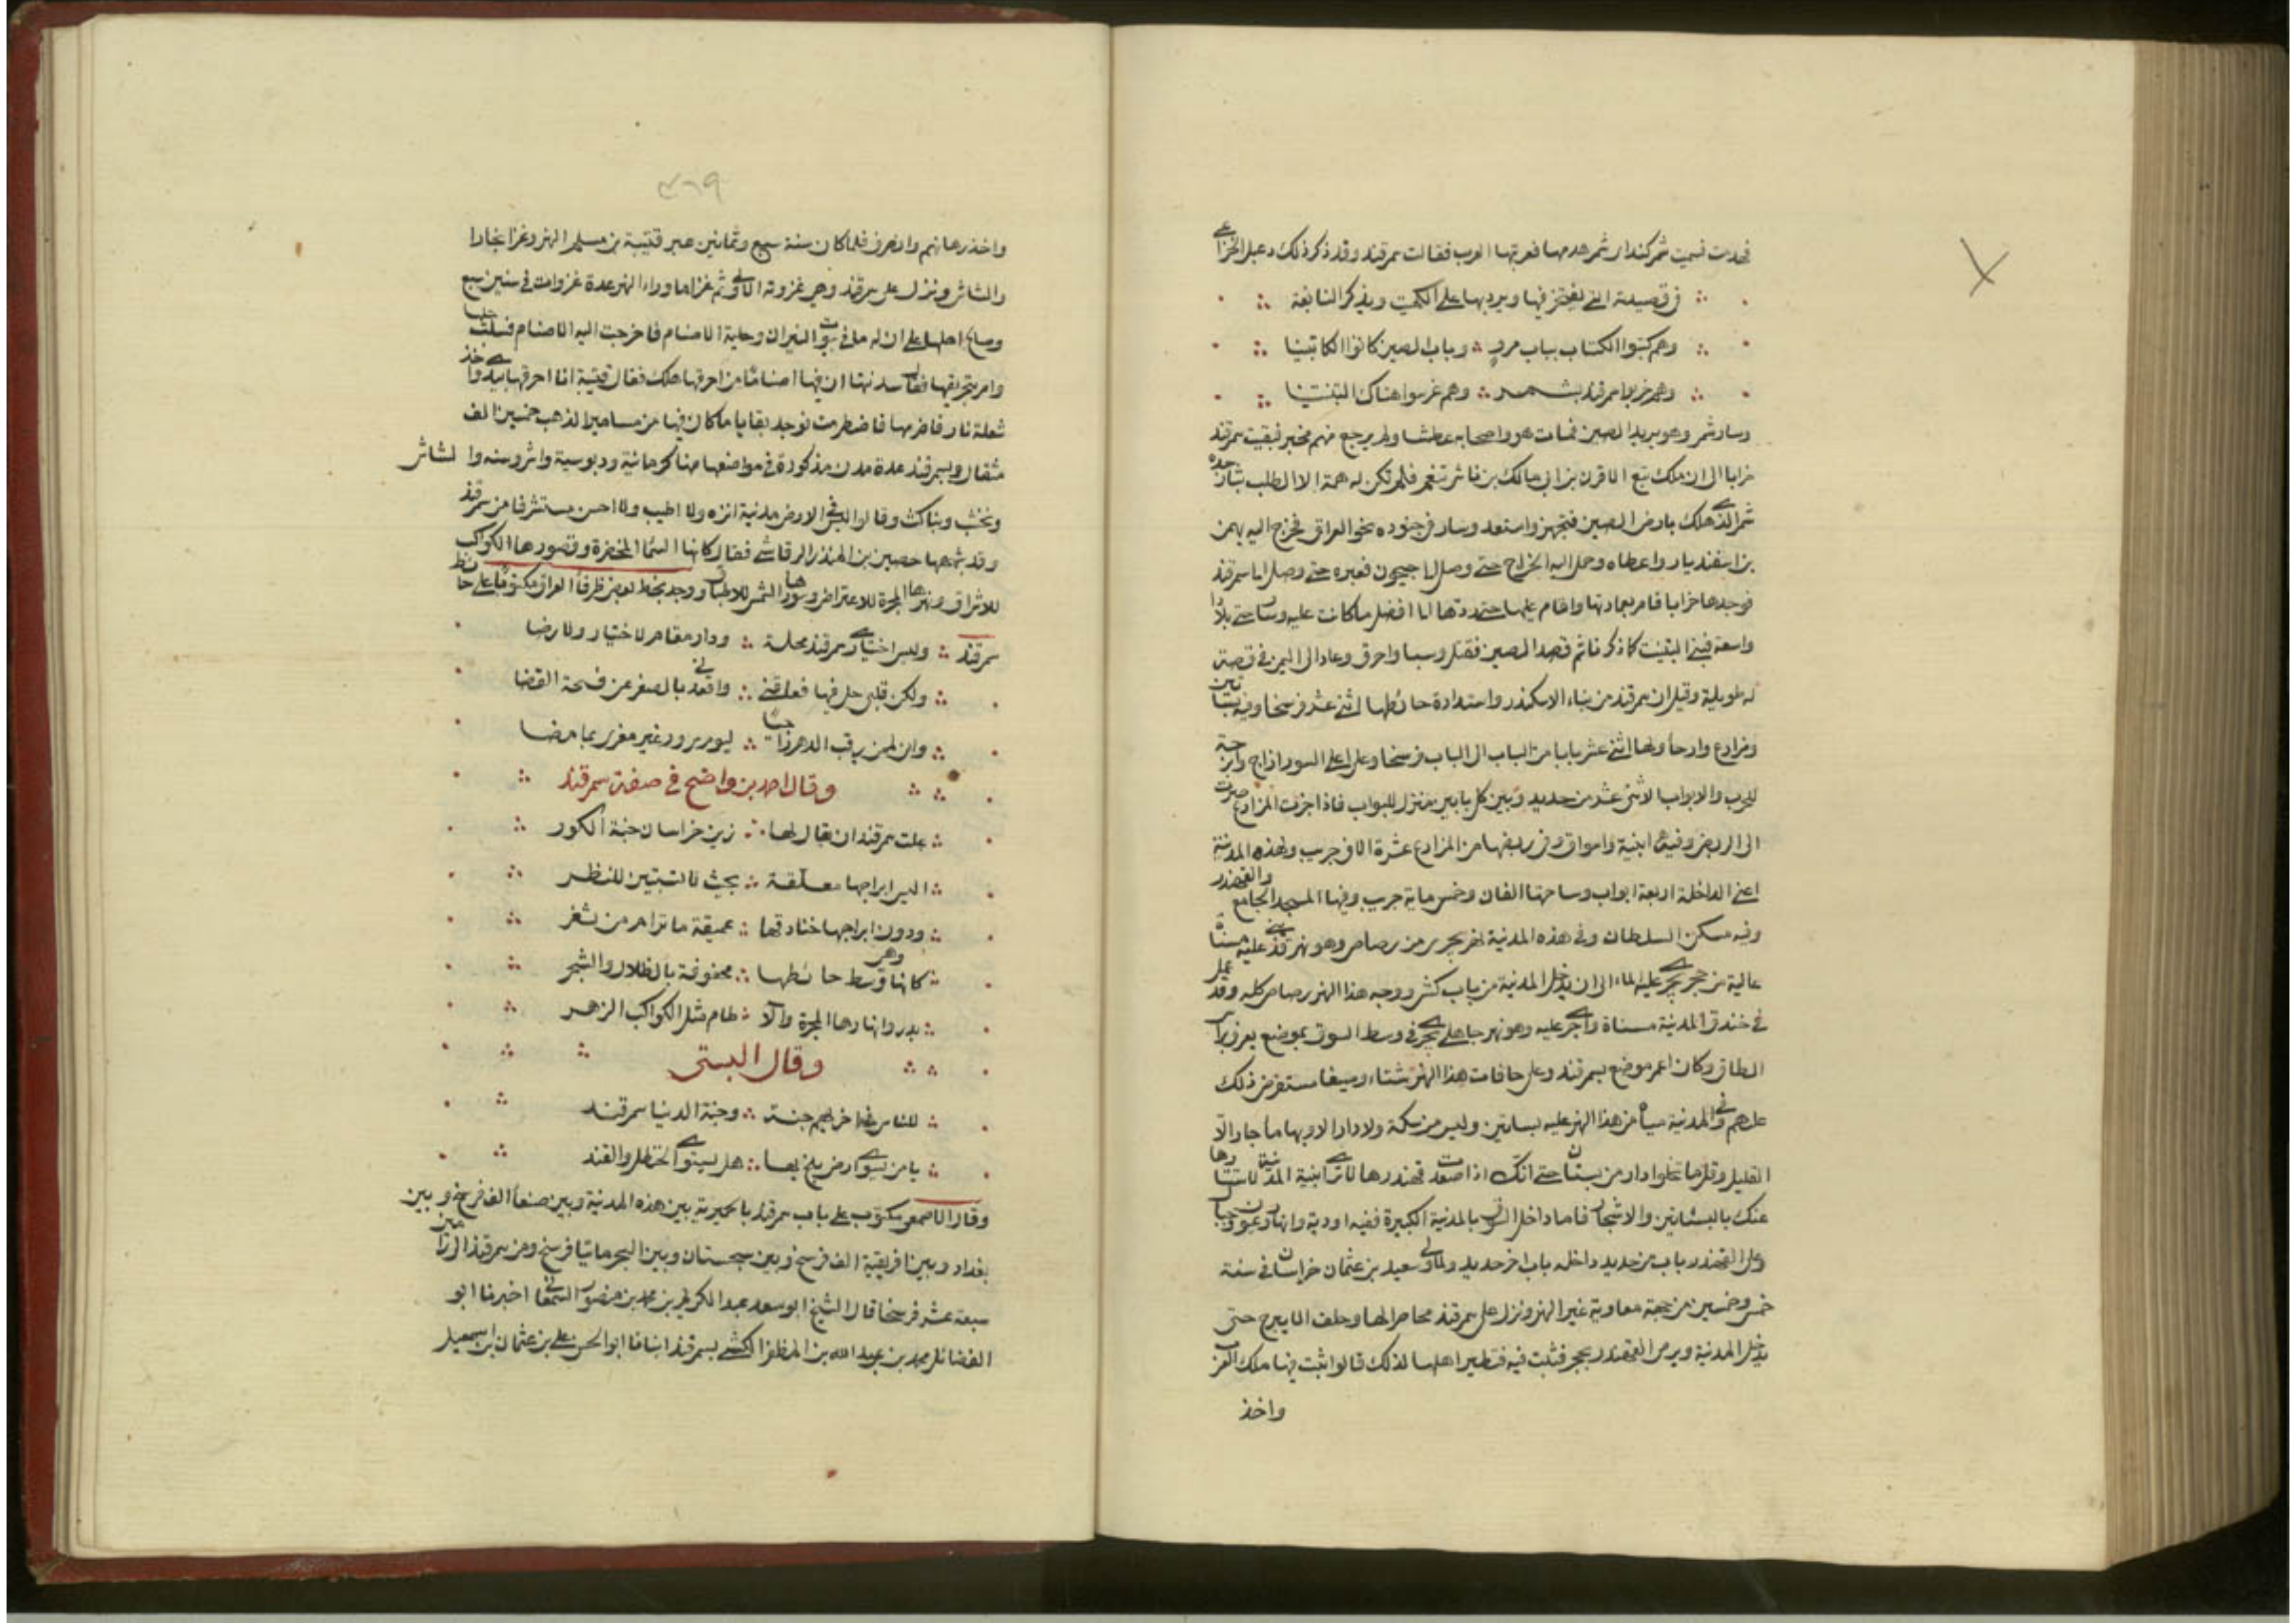 فهدمت فسميت شمركند اى شمر هدمها فعربتها العرب فقالت سمرقند وقد ذكر ذلك دعبل الخزاعى
فى قصيدته التى يفتخر فيها ويرد بها على الكميت ويذكر التبابعة
وهم كتبوا الكتاب بباب مرو وباب الصين كانوا الكاتبينا
وهم سمرقند بشمر وهم غرسوا هناك التبتينا
وسار شمر وهو يريد الصين فمات هو واصحابه عطشا ولم يرجع منهم مخبر فبقيت سمرقند
خرابا الى ان ملك تبع الاقرن بن ابى مالك بن ناشر ينعم فلم تكن له همة الا الطلب بثار جده
شمر الذى هلك بارض الصين فتجهز واستعد وسار فى جنوده نحو العراق فخرج اليه بهمن
بن اسفنديار واعطاه وحمل اليه الخراج حتى وصل الى جيحون فعبره حتى وصل الى سمرقند
فوجدها خرابا فامر بعمارتها واقام عليها حتى ردها الى افضل ما كانت عليه وسار حتى بلادا
واسعة فبنى التبت كما ذكرنا ثم قصد الصين فقتل وسبا واحرق وعاد الى اليمن فى قصة
له طويلة وقيل ان سمرقند من بناء الاسكندر واستدارة حائطها اثنى عشر فرسخا وفيه بساتين
ومزارع وارحا ولها اثنى عشر بابا من الباب الى الباب فرسخ وعلى اعلى السور ازاج وابرجة
للحرب والابواب الاثنى عشر من حديد وبين كل بابين منزل للبواب فاذا جزت المزارع صرت
الى الربض وفيه ابنية واسواق وفى ربضها من المزارع عشرة الاف جريب ولهذه المدينة
اعنى الداخلة اربعة ابواب وساحتها الفان وخمس ماية جريب وفيها المسجد الجامع والقهندز
وفيه مسكن السلطان وفى هذه المدينة نهر يجرى من رصاص وهو نهر قد بنى عليه مسناة
عالية من حجر يجرى عليه الماء الى ان يدخل المدينة من باب كش ووجه هذا النهر رصاص كله وقد عمل
فى خندق المدينة مسناة واجرى عليه وهو نهر جاهلى يجرى فى وسط السوق بموضع يعرف بباب
الطاق وكان اعمر موضع بسمرقند وعلى حافات هذا النهر شتاء وصيفا مستفرض ذلك
عليهم وفى المدينة مياه من هذا النهر عليه بساتين وليس من سكة ولا دار الا وبها ما جار الا
القليل وقل ما تخلوا دار من بستان حتى انك اذا صعدت قهندزها لا ترى ابنية المدينة لاستتارها
عنك بالبساتين والاشجار فاما داخل السوق بالمدينة الكبيرة ففيه اودية وانهار وعيون وجبال
وعلى القهندز باب من حديد داخله باب اخر حديد ولما ولى سعيد بن عثمان خراسان فى سنة
خمس وخمسين من جهة معاوية عبر النهر ونزل على سمرقند محاصرا لها وحلف الا يبرح حتى
يدخل المدينة ويرمى القهندز بحجر فثبت فيه فتطير اهلها لذلك قالوا ثبت فيها ملك العرب
واخذ
٤٦٩
واخذ رهانهم وانصرف فلما كان سنة سبع وثمانين عبر قتيبة بن مسلم النهر وغزا بخارا
والشاش ونزل على سمرقند وهى غزوته الاولى ثم غزا ما وراء النهر عدة غزوات فى سنين سبع
وصالح اهلها على ان له ما فى بيوت النيران وحلية الاصنام فاخرجت اليه الاصنام فسلب حليها
وامر بتحريقها فقال سدنتها ان فيها اصناما من احرقها هلك فقال قتيبة انا احرقها بيدى واخذ
شعلة نار فاضرمها فاضطرمت فوجد بقايا ما كان فيها من مسامير الذهب خمسين الف
مثقال وبسمرقند عدة مدن مذكورة فى مواضعها منها كرمانية ودبوسية واشروسنه والشاش
ونخشب وبناكث وقالوا ليس فى الارض مدينة انزه ولا اطيب ولا احسن مستشرفا من سمرقند
وقد شبهها حصين بن المنذر الرقاشى فقال كانها السما للخضرة وقصورها الكواكب
للاشراق ونهرها المجرة للاعتراض وسورها الشمس للاطباق ووجد بخط بعض ظرفا العراق مكتوبا على حائط
سمرقند وليس اختيارى سمرقند محلة ودار مقام لاختيار ولا رضا
ولكن قلبى حل فيها فعاقنى واقعدنى بالصغر عن فسحة القضا
وانى لمن يرقب الدهر راجيا ليوم سرور غير مغرى بما مضا
وقال احمد بن واضح فى صفة سمرقند
علت سمرقند ان يقال لها زين خراسان جنة الكور
اليس ابراجها معلقة بحيث لا تستبين للنظر
ودون ابراجها خنادقها عميقة ما ترام من ثغر
كانها وهى وسط حائطها محفوفة بالظلال والشجر
بدر وانهارها المجرة والآ طام مثل الكواكب الزهر
وقال البستى
للناس فى اخراهم جنة وجنة الدنيا سمرقند
يا من يسوى ارض بلخ بها هل يستوى الحنظل والقند
وقال الاصمعى مكتوب على باب سمرقند بالحميرية بين هذه المدينة وبين صنعا الف فرسخ وبين
بغداد وبين افريقية الف فرسخ وبين سجستان وبين البحر مائتا فرسخ ومن سمرقند الى زامين
سبعة عشر فرسخا قال الشيخ ابو سعد عبد الكريم بن محمد بن منصور السمعانى اخبرنا ابو
الفضائل محمد بن عبد الله بن المظفر الكشى بسمرقند انبانا ابو الحسن على بن عثمان بن اسمعيل